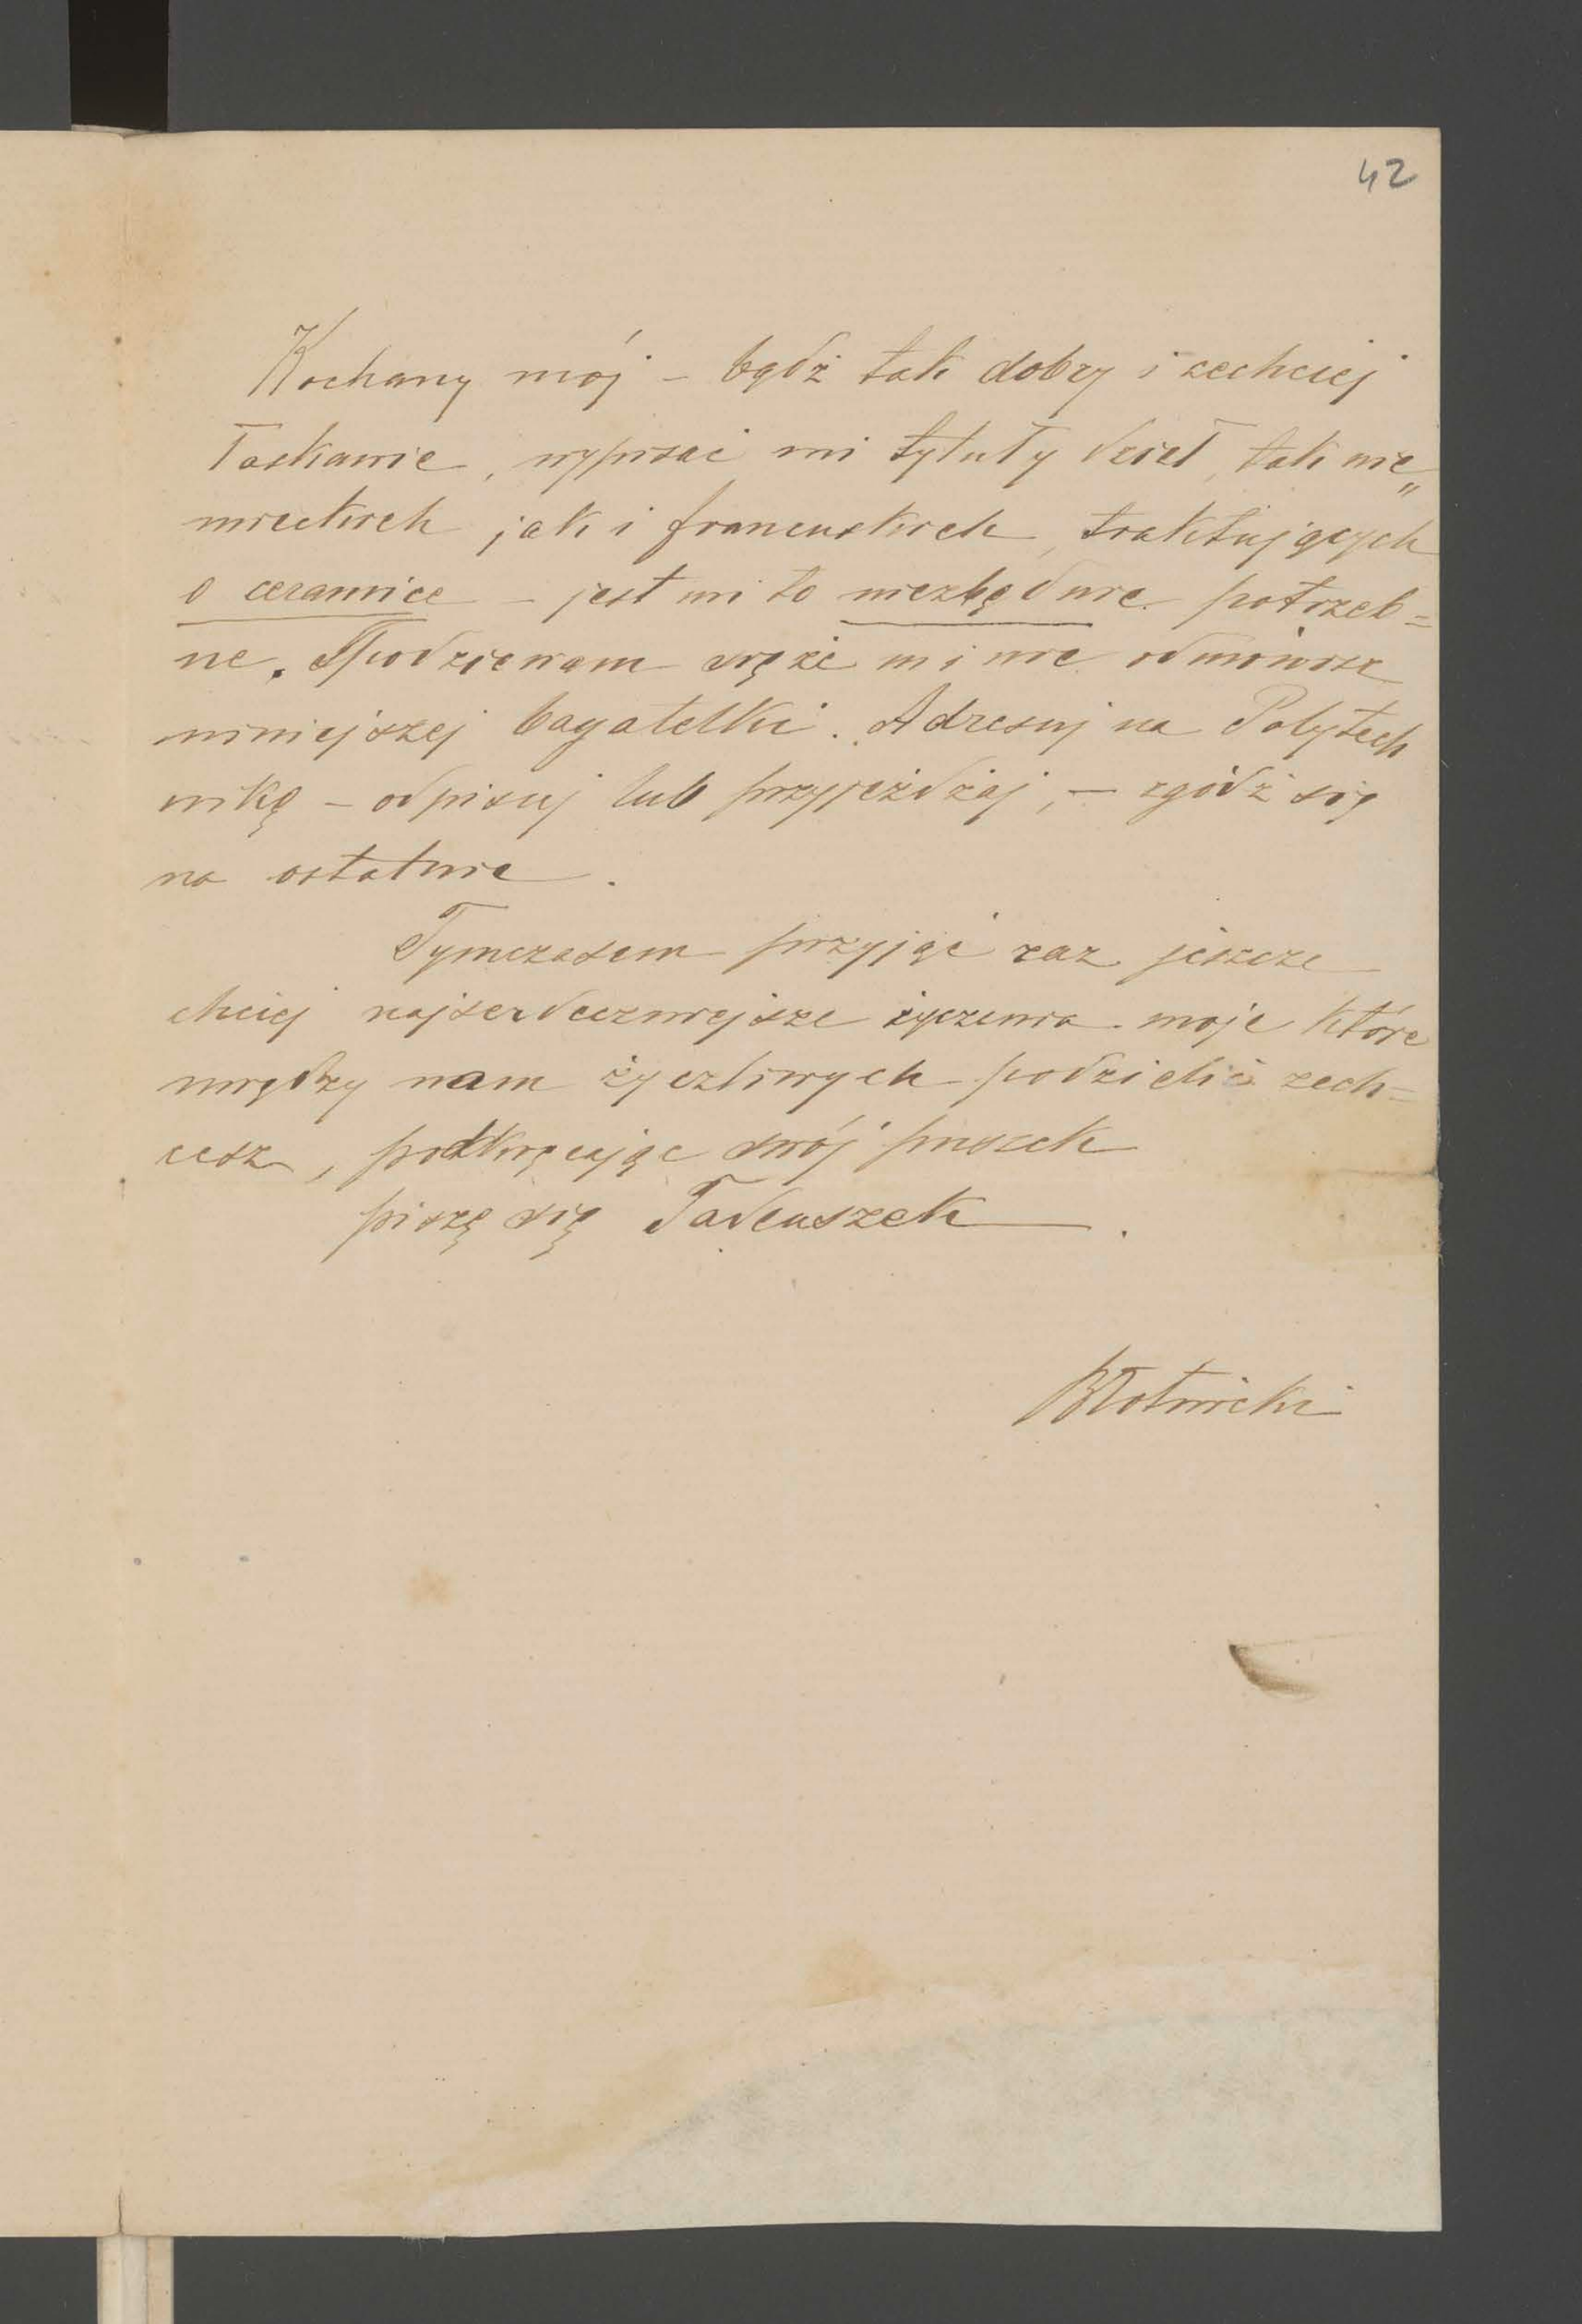 42
Kochany mój – bądź tak dobry i zechciej
łaskawie, wypisać mi tytuły dzieł, tak nie„
mieckich jak i francuskich, traktujących
o ceramice – jest mi to niezbędnie potrzeb=
ne. Spodziewam się że mi nie odmówisz
niniejszej bagatelki. Adresuj na Polytech
nikę – odpisuj lub przyjeżdżaj, – zgódź się
na ostatnie.
Tymczasem przyjąć raz jeszcze
chciej najserdeczniejsze życzenia moje które
między nam życzliwych podzielić zech=
cesz, podkręcając swój puszek
piszę się Tadeuszek.
Błotnicki